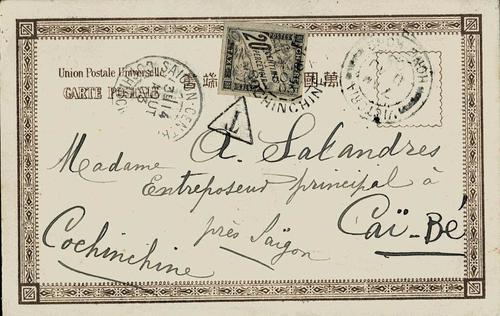 Union Postale Universelle 萬國
CARTE POSTALE
SAIGON CENTRAL
20
T
COCHINCHINE
VICTORIA
HONG KONG
Madame A. Salandres
Entreposeur principal à
Caï-Bé
près Saïgon
Cochinchine